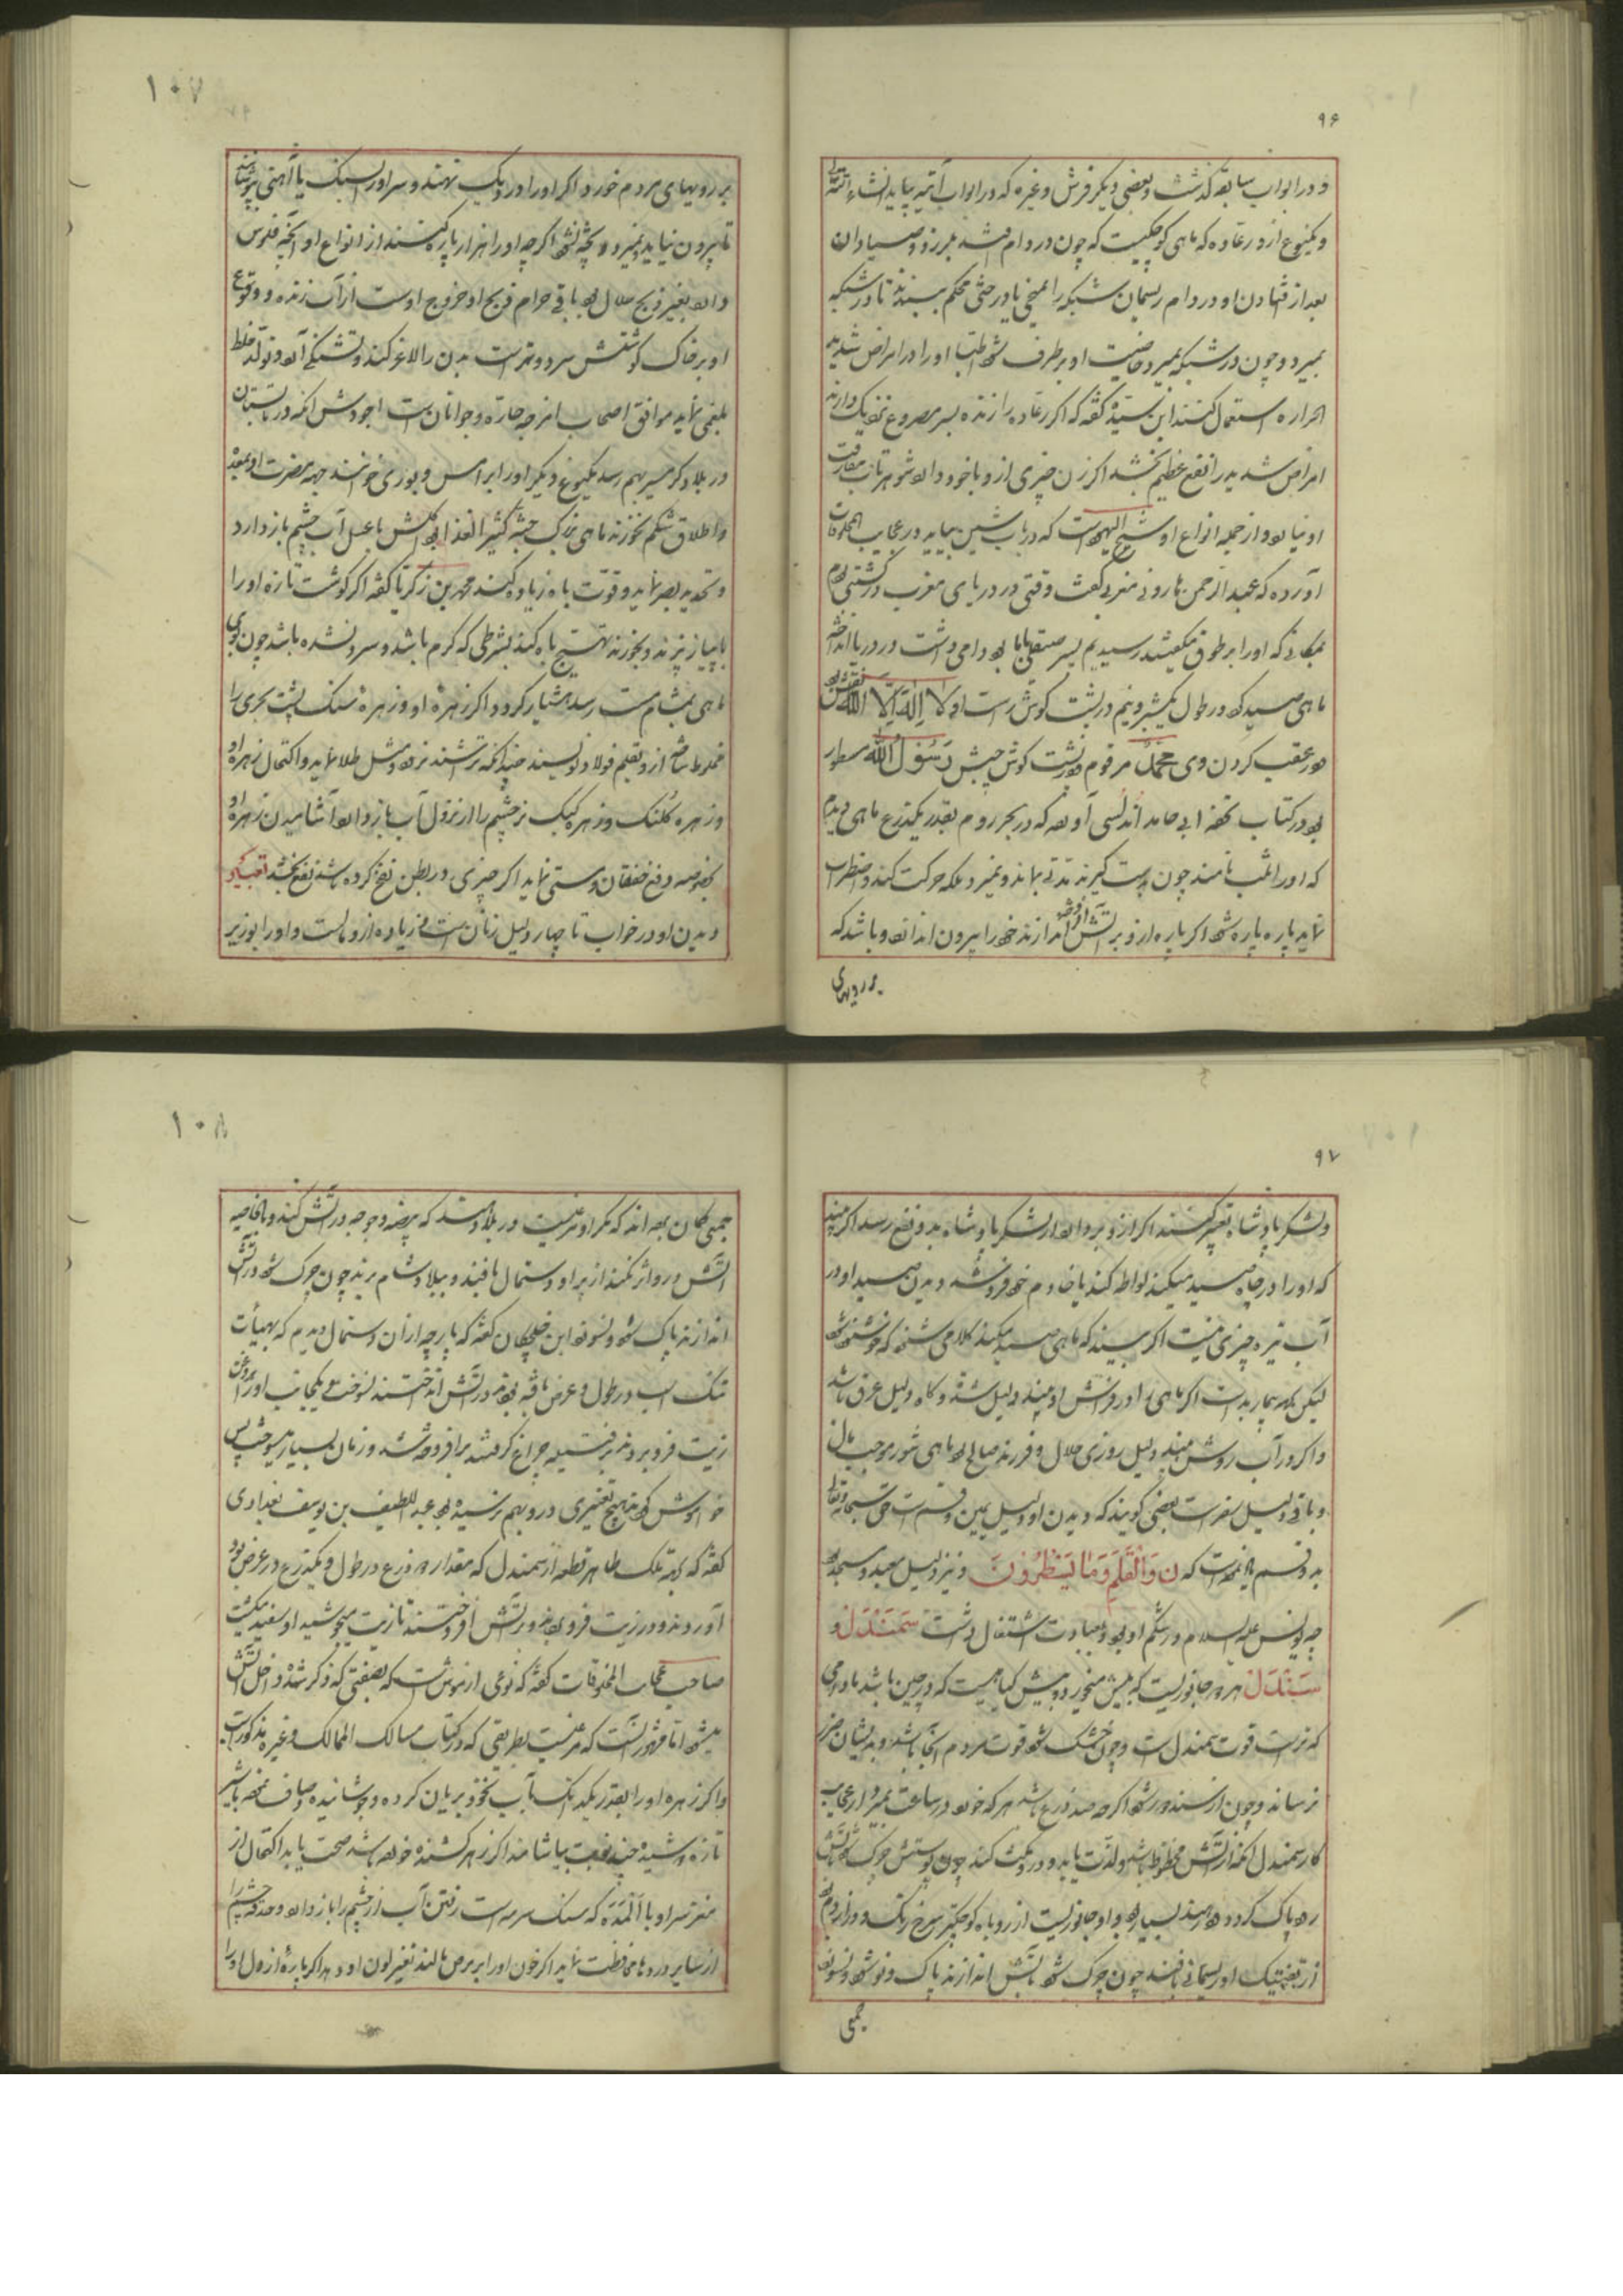 ۹۶
و در ابواب سابقه گذشت و بعضی دیگر فرش و غیره که در ابواب آتیه بیاید انشاء الله
و یکنوع از و رعاده که ماهی کوچکیست که چون در دام افتد بلرزد و صیادان
بعد از فتادن او در دام ریسمان شبکه را بمیخی یا درختی محکم ببندند تا در شبکه
بمیرد و چون در شبکه بمیرد خاصیت او برطرف شود اطبا او را در امراض شدید
الحراره استعمال کنند ابن سیّده گفته که اگر رعاده را زنده بسر مصروع نزدیک دارند
امراض شدید را نفع عظیم بخشد اگر زن چیزی از و با خود دارد شوهر تاب مفارقت
او نیارد و از جمله انواع او شیخ الیهود است که در باب شین بیاید در عجایب المخلوقات
آورده که عبد الرحمن هارون مغربی گفت وقتی در دریای مغرب در کشتی بودم
بمکانی که او را برطون میگفتند رسیدیم پسر صقلی با ما بود دامی داشت در دریا انداخته
ماهی صید کرد در طول یکشبر و نیم در پشت گوش راست او لا اِله اِلّا الله نقش بود
و در عقب کردن وی محمّد مرقوم و در پشت گوش چپش رَسُولُ الله مسطور
بود در کتاب تحفه ابی حامد اندلسی آورده که در بحر روم بقدر یکذرع ماهی دیدم
که او را ثلب نامند چون بدست گیرند مدتی بماند و نمیرد بلکه حرکت کند و اضطراب
نماید پاره پاره شود اگر پاره از و بر آتش اندازند خود را بیرون اندازد و باشد که
بر رویهای
۱۰۷
بر رویهای مردم خورد و اگر او را در دیک نهند و سر او را بسنک یا آهنی نپوشانند
تا بیرون نیاید نمیرد و پخته نشود اگر چه او را هزار پاره کنند از انواع او آنچه فلوس
دارد بغیر ذبح حلال بود باقی حرام ذبح او خروج اوست از آب زنده و وقوع
او بر خاک گوشتش سرد و تر است بدن را لاغر کند و تشنکی آورد و تولّد خلط
بلغمی نماید موافق اصحاب امزجه حارّه و جوانان است اجودش آنکه در تابستان
در بلاد گرمسیر بهم رسد یکنوع دیگر او را برامس و بوری خوانند جهه مضرت او بمعده
و اطلاق شکم نخورند ماهی بزرک جثّه کثیر الغذا بود اکلش با عسل آب چشم باز دارد
و تحدید بصر نماید و قوّت باه زیاده کند محمد بن زکریا گفته اگر گوشت تازه او را
با پیاز بپزند و بخورند تهییج باه کند بشرطی که گرم باشد و سرد نشده باشد چون بوی
ماهی بمشام مست رسد هشیار گردد اگر زهره او و زهره سنک پشت بحری را
مخلوط ساخته از و بقلم فولاد نویسند چنانکه تراشند نرود مثل طلا نماید و اکتحال زهره او
و زهره کلنک و زهره کبک نر چشم را از نزول آب باز دارد آشامیدن زهره او
بخصوصه دفع خفقان و سستی نماید اگر چیزی در بطن نفخ کرده باشد نفع بخشد تعبیر او
دیدن او در خواب تا چهار دلیل زنان است و زیاده از و مالست و او را بوزیر
۹۷
و لشکر پادشاه تعبیر کنند اگر از و بردارد از لشکر پادشاه بدو نفع رسد اگر بیند
که او را در چاه صید میکند لواطه کند یا خادم خود فروشد دیدن صید او در
آب تیره چیزی نیست اگر بیند که ماهی صید میکند کلامی شنود که خوشنود شود
لیکن بجهه بیمار بد است اگر ماهی را در فراش او بیند دلیل شدّه و گاه دلیل غرق باشد
و اگر در آب روشن بیند دلیل روزی حلال و فرزند صالح بود ماهی شور موجب بال
و باقی دلیل سفر است بعضی گویند که دیدن او دلیل یمین و قسم است حق سبحانه و تعالی
بدو قسم یاد نموده است که ن وَالْقَلَمِ وَمَا یَسْطُرُونَ و نیز دلیل معبد و مسجد بود
چه یونس علیه السلام در شکم او بود و بعبادت اشتغال داشت سَمَنْدَل و
سَنْدَل هر دو جانوریست که بیش میخورد و بیش گیاهیست که در چین باشد مادامی
که تر است قوت سمندل است و چون خشک شود قوت مردم آنجا باشد و بدیشان ضرر
نرساند و چون از سند دور شود اگر چه صد ذرع باشد هر که خورد در ساعت بمیرد و از عجایب
کار سمندل آنکه از آتش محظوظ باشد و لذت یابد و در و مکث کند چون پوستش چرک شود بآتش
رود پاک گردد و در هند بسیار بود و او جانوریست از روباه کوچکتر سرخ رنک و دراز دم بود
از تعنیتک او ریسمانی بافند چون چرک شود بآتش اندازند پاک و نو شود و نسوزد
جمعی
۱۰۸
جمعی گمان برده اند که مگر او مرغیست در بلاد هند که بیضه و جوجه در آتش کند و بالخاصیه
آتش درو اثر نکند از پر او دستمال بافند و ببلاد شام برند چون چرک شود در آتش
اندازند پاک شود و نسوزد ابن خلکان گفته که پارچه از آن دستمال دیدم که بهیأت
تنک اسب در طول و عرض بافته بودند در آتش انداختند نسوخت یکجانب او را بروغن
زیت فرو بردند بر فتیله چراغ گرفتند بر افروخته شد و زمان بسیار میسوخت پس
خاموش کردند هیچ تغییری درو بهم نرسیده بود عبد اللطیف بن یوسف بغدادی
گفته که بجهه ملک طاهر قطعه از سمندل که مقدار دو ذرع در طول و یکذرع در عرض بود
آوردند و در زیت فرو بردند و در آتش افروختند تا زیت میجوشید او سفید میگشت
صاحب عجایب المخلوقات گفته که نوعی از موش است که بصفتی که ذکر شد داخل آتش
میشود امّا مشهور آنست که مرغیست بطریقی که در کتاب مسالک الممالک و غیره مذکور است
و اگر زهره او را بقدر یکدانک بآب نخود بریان کرده و جوشانیده و صاف نموده با شیر
تازه دوشیده چند نوبت بیاشامد اگر زهر کشنده خورده باشد صحت یابد اکتحال از
مغز سر او با اَلْمَدَه که سنک سرمه است رفتن آب از چشم را باز دارد و حدقه چشم را
از سایر دردها محافظت نماید اگر خون او را بر برص مالند تغییر لون او دهد اگر پاره از دل او را